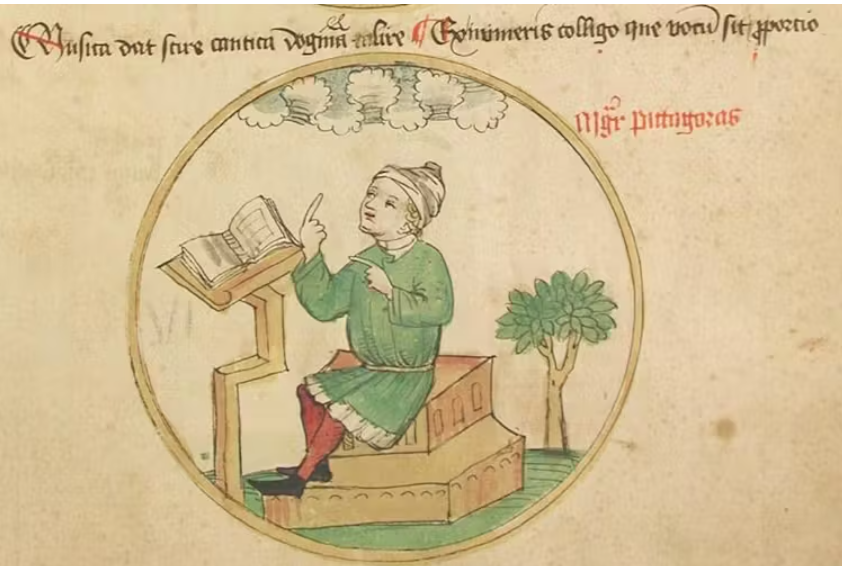 Musica dat scire cantica dogma lire ¶ Ex numeris colligo que vocū sit ꝓporcio
Mgr̄ pittagoras